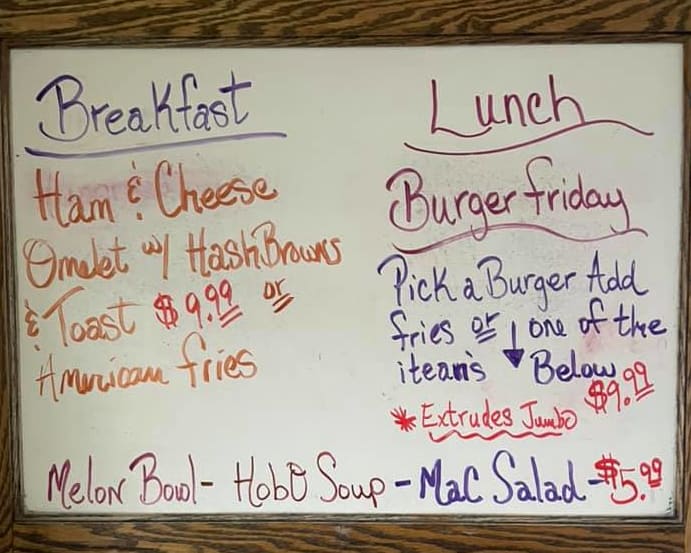 Breakfast
Ham & Cheese
Omelet w/ HashBrowns
& Toast $9.99 or
American fries
Lunch
Burger friday
Pick a Burger Add
fries or ↓ one of the
itean's Below
$9.99
* Extrudes Jumbo
Melon Bowl - Hobo Soup - Mac Salad - $5.99